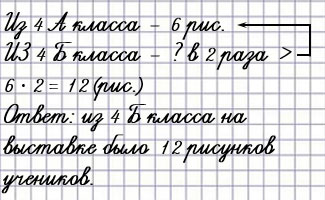 Из 4 А класса – 6 рис.
ИЗ 4 Б класса – ? в 2 раза >
6 · 2 = 12 (рис.)
Ответ: из 4 Б класса на
выставке было 12 рисунков
учеников.